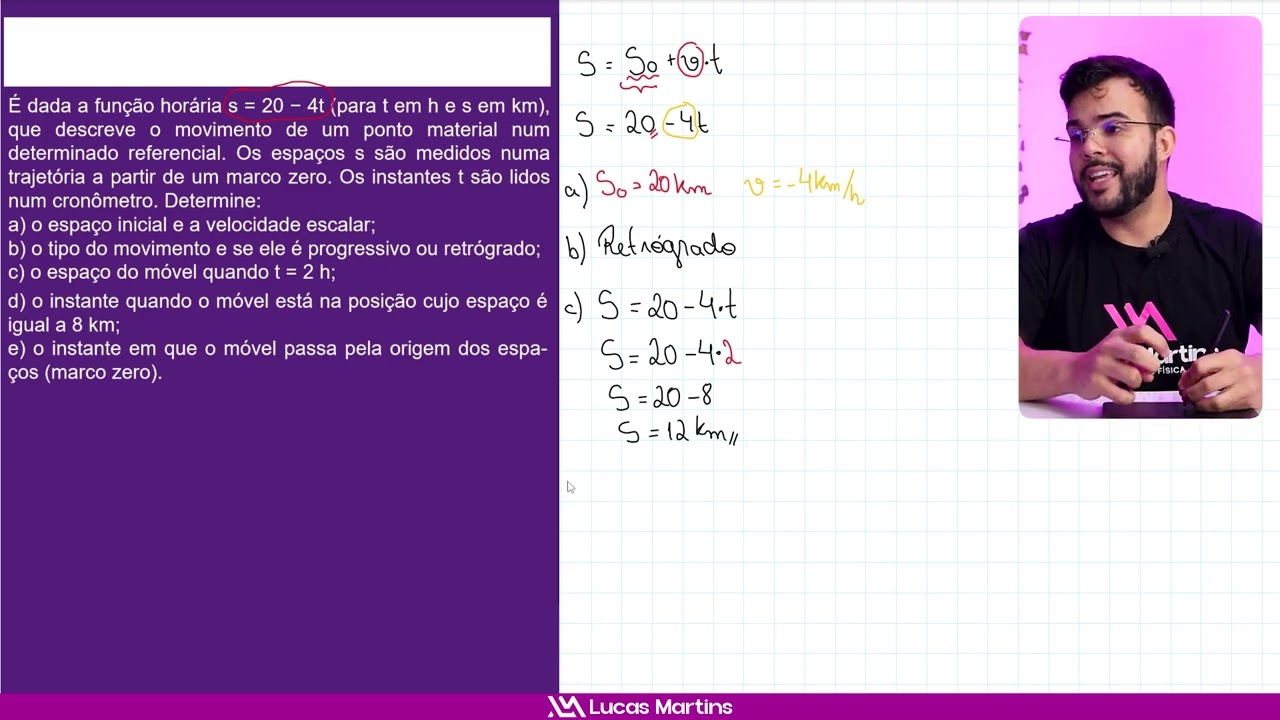 É dada a função horária s = 20 − 4t (para t em h e s em km),
que descreve o movimento de um ponto material num
determinado referencial. Os espaços s são medidos numa
trajetória a partir de um marco zero. Os instantes t são lidos
num cronômetro. Determine:
a) o espaço inicial e a velocidade escalar;
b) o tipo do movimento e se ele é progressivo ou retrógrado;
c) o espaço do móvel quando t = 2 h;
d) o instante quando o móvel está na posição cujo espaço é
igual a 8 km;
e) o instante em que o móvel passa pela origem dos espa-
ços (marco zero).
S = S₀ + v·t
S = 20 - 4t
a) S₀ = 20 km v = -4 km/h
b) Retrógrado
c) S = 20 - 4·t
S = 20 - 4·2
S = 20 - 8
S = 12 km //
FÍSICA
Lucas Martins